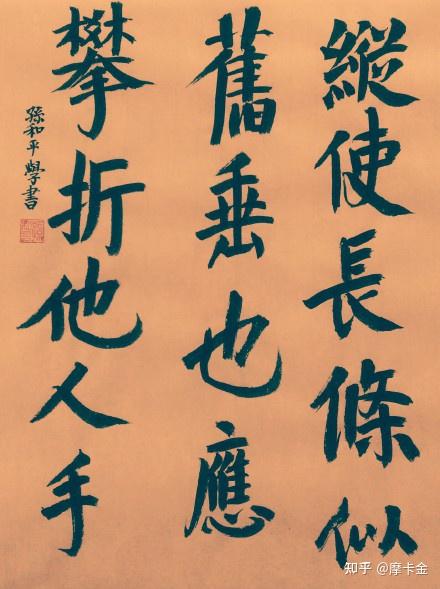 縱使長條似
舊垂也應
攀折他人手
孫和平學書
知乎 @摩卡金